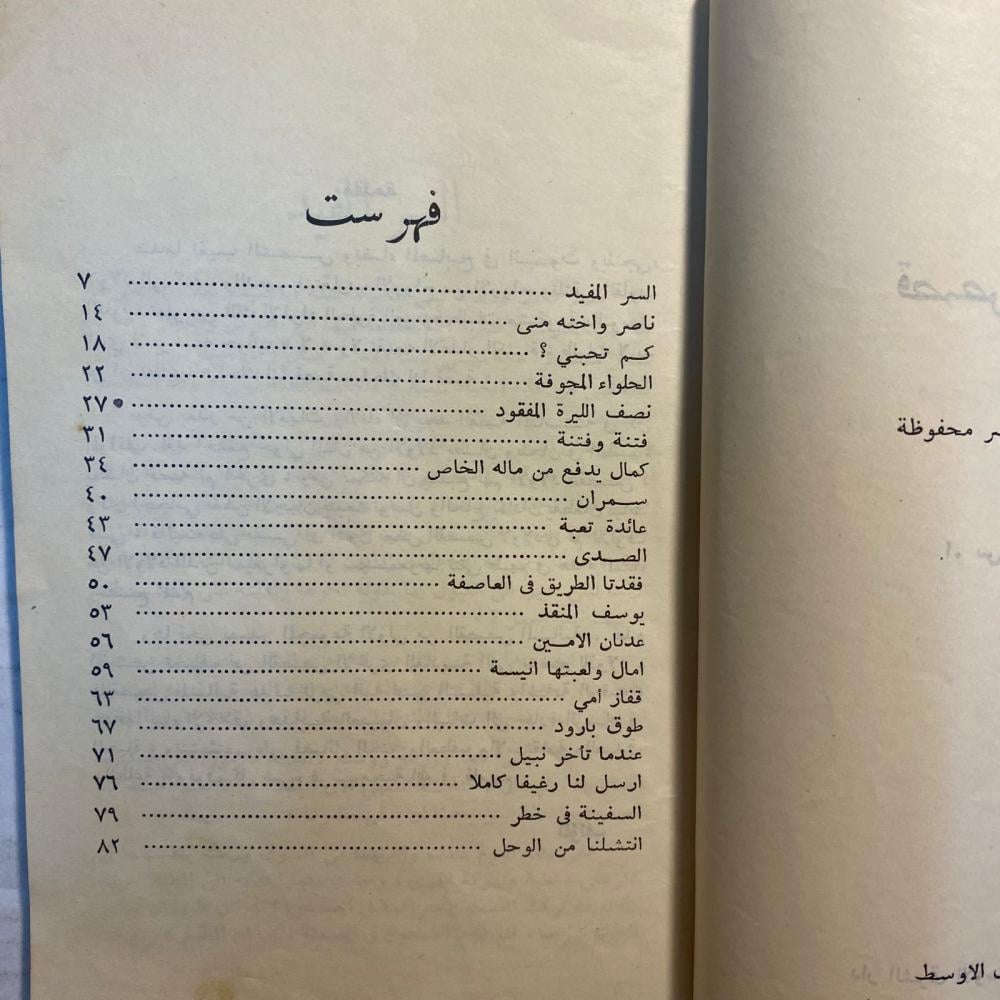 فهرست
السر المفيد ........ ٧
ناصر واخته منى ........ ١٤
كم تحبني ؟ ........ ١٨
الحلواء المجوفة ........ ٢٢
نصف الليرة المفقود ........ ٢٧
فتنة وفتنة ........ ٣١
كمال يدفع من ماله الخاص ........ ٣٤
سمران ........ ٤٠
عائدة تعبة ........ ٤٣
الصدى ........ ٤٧
فقدتا الطريق فى العاصفة ........ ٥٠
يوسف المنقذ ........ ٥٣
عدنان الامين ........ ٥٦
امال ولعبتها انيسة ........ ٥٩
قفاز أمي ........ ٦٣
طوق بارود ........ ٦٧
عندما تأخر نبيل ........ ٧١
ارسل لنا رغيفا كاملا ........ ٧٦
السفينة فى خطر ........ ٧٩
انتشلنا من الوحل ........ ٨٢
محفوظة
الاوسط